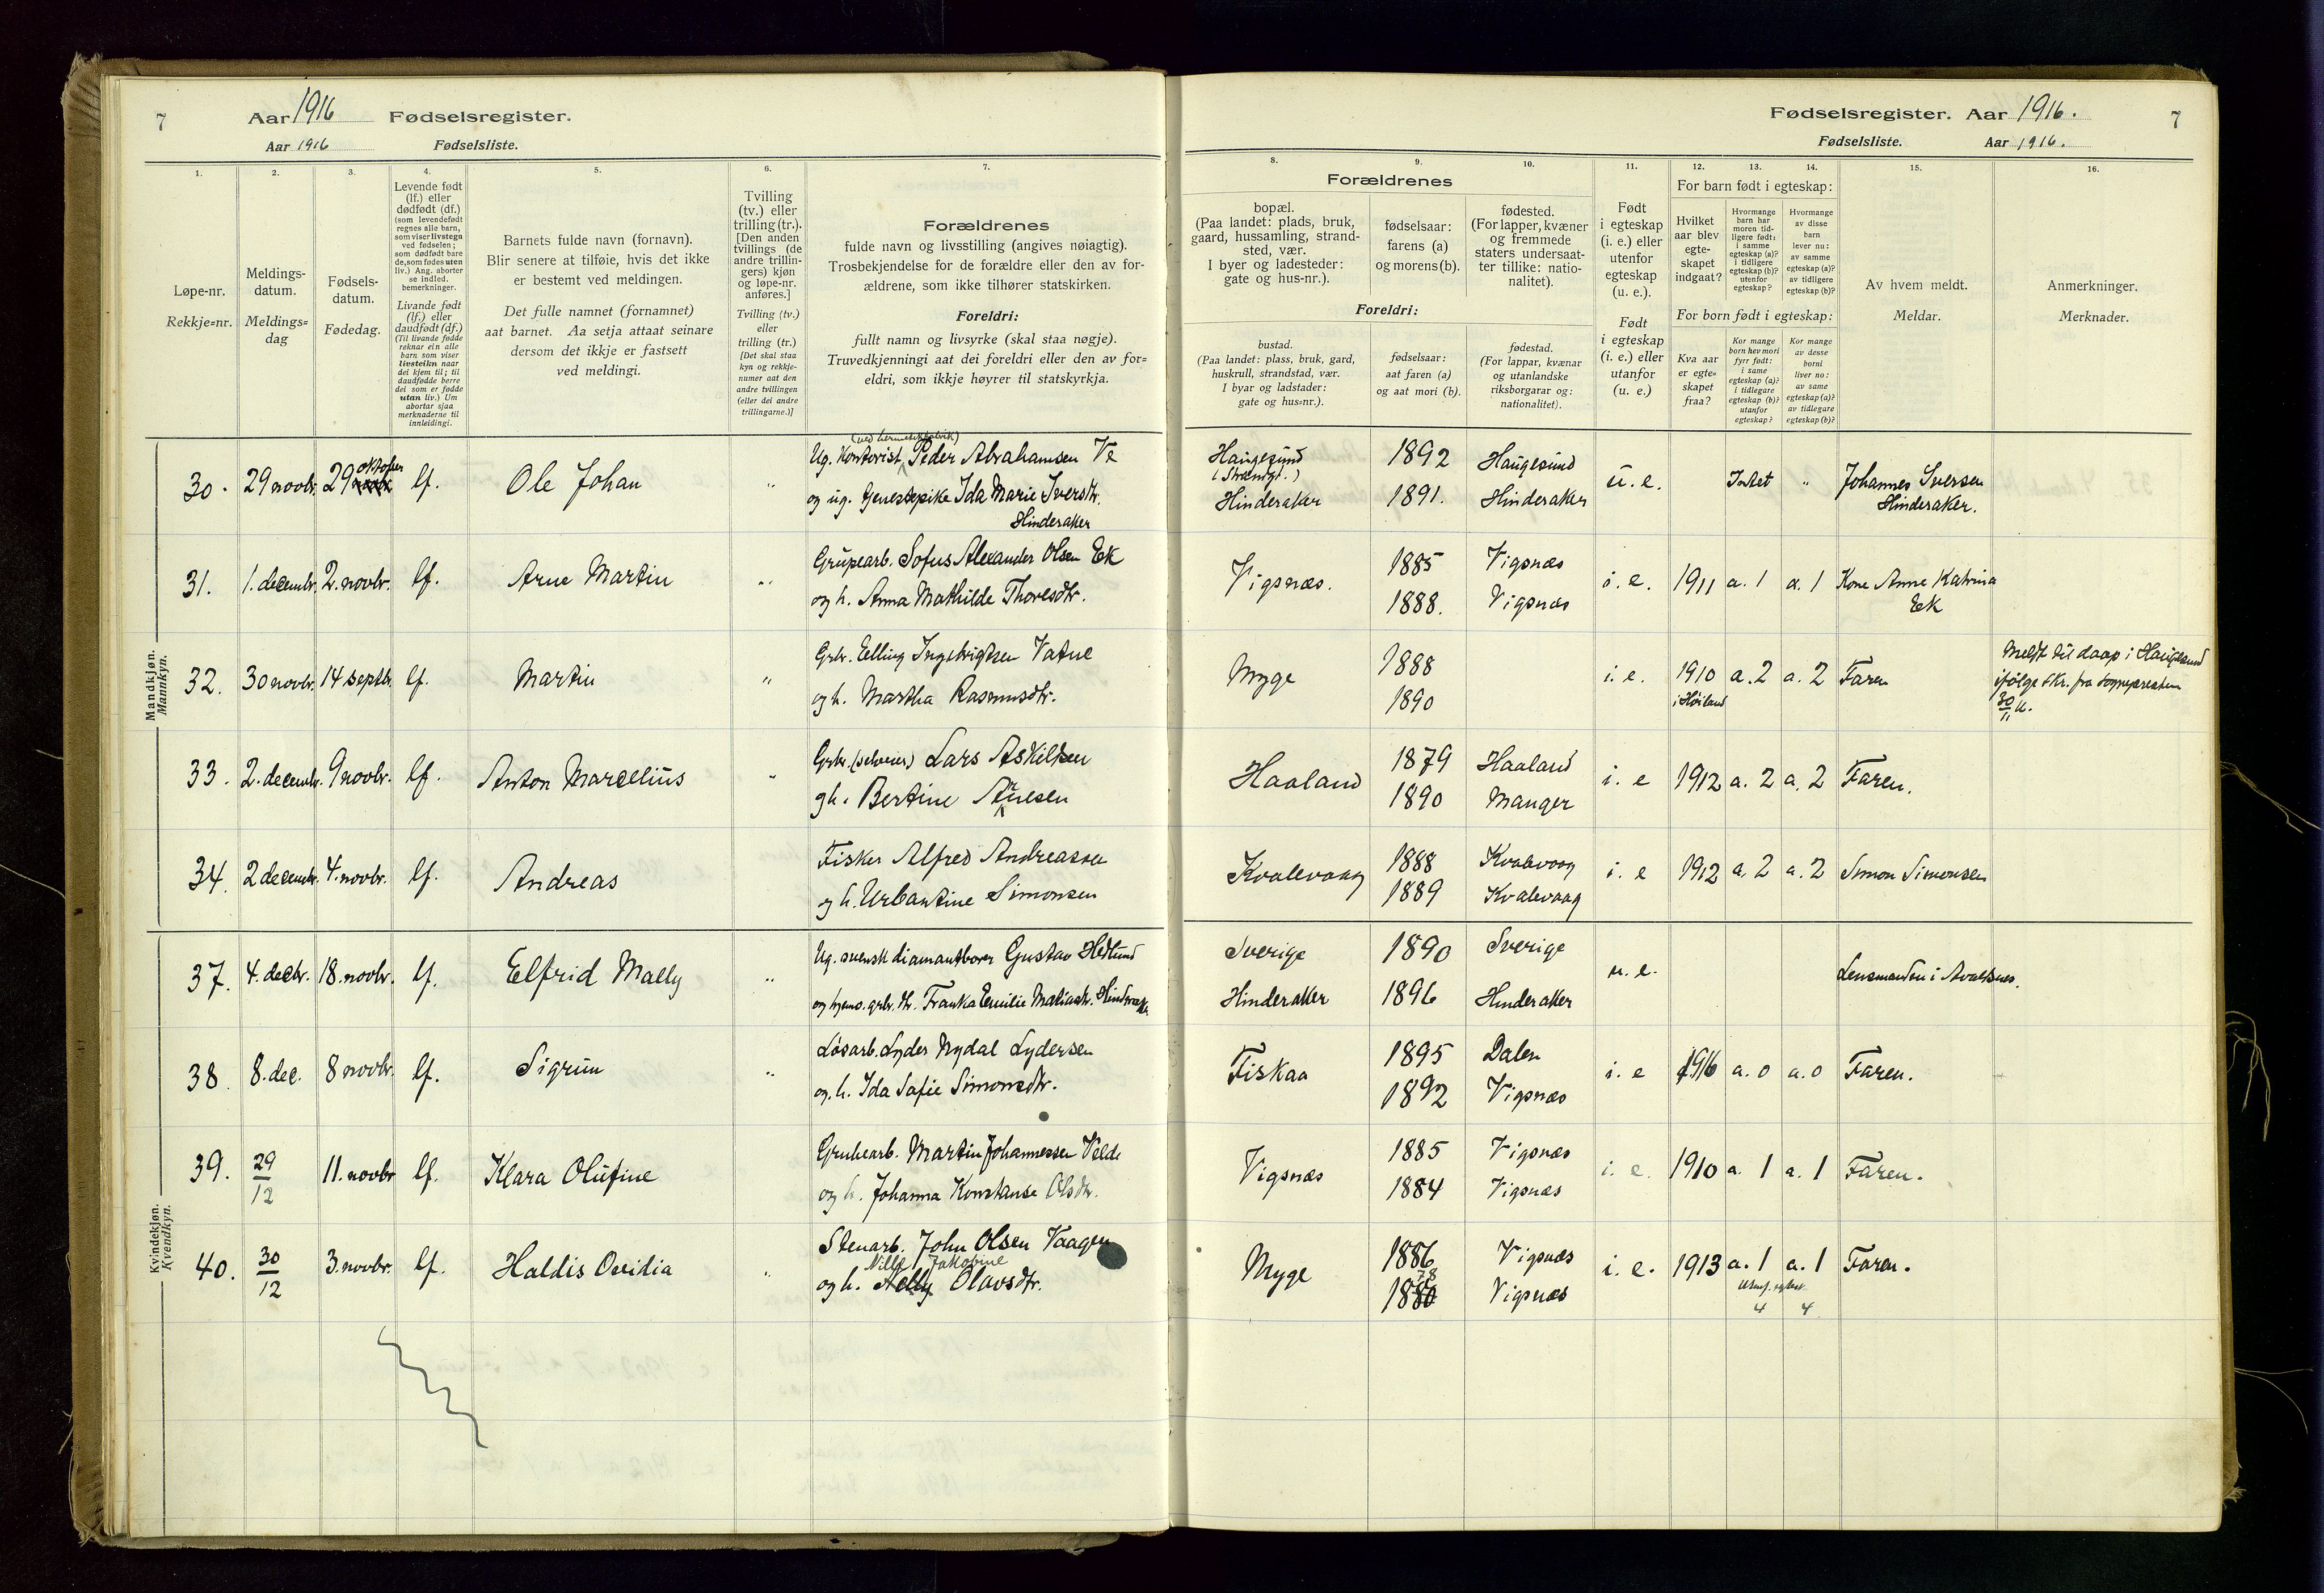 7
Aar 1916
Fødselsregister.
Aar 1916
Fødselsliste.
Fødselsregister. Aar 1916.
7
Fødselsliste.
Aar 1916.
1.
Løpe-nr.
Rekkje-nr.
2.
Meldings-
datum.
Meldings-
dag
3.
Fødsels-
datum.
Fødedag.
4.
Levende født
(lf.) eller
dødfødt (df.)
(som levendefødt
regnes alle barn,
som viser livstegn
ved fødselen;
som dødfødt bare
de, som fødes uten
liv.) Ang. aborter
se indled.
bemerkninger.
Livande født
(lf.) eller
daudfødt (df.)
(Til livande fødde
reknar ein alle
barn som viser
livsteikn naar
dei kjem til; til
daudfødde berre
dei som er fødde
utan liv.) Um
abortar sjaa
merknaderne til
innleidingi.
5.
Barnets fulde navn (fornavn).
Blir senere at tilføie, hvis det ikke
er bestemt ved meldingen.
Det fulle namnet (fornamnet)
aat barnet. Aa setja attaat seinare
dersom det ikkje er fastsett
ved meldingi.
6.
Tvilling
(tv.) eller
trilling (tr.).
[Den anden
tvillings (de
andre trillin-
gers) kjøn
og løpe-nr.
anføres.]
Tvilling (tv.)
eller
trilling (tr.)
[Det skal staa
kyn og rekkje-
numer aat den
andre tvillingen
(eller dei andre
trillingarne.)]
7.
Forældrenes
fulde navn og livsstilling (angives nøiagtig).
Trosbekjendelse for de forældre eller den av for-
ældrene, som ikke tilhører statskirken.
Foreldri:
fullt namn og livsyrke (skal staa nøgje).
Truvedkjenningi aat dei foreldri eller den av for-
eldri, som ikkje høyrer til statskyrkja.
8.
9.
10.
Forældrenes
bopæl.
(Paa landet: plads, bruk,
gaard, hussamling, strand-
sted, vær.
I byer og ladesteder:
gate og hus-nr.).
fødselsaar:
farens (a)
og morens (b).
fødested.
(For lapper, kvæner
og fremmede
staters undersaat-
ter tillike: natio-
nalitet).
Foreldri:
bustad.
(Paa landet: plass, bruk, gard,
huskrull, strandstad, vær.
I byar og ladstader:
gate og hus-nr.).
fødselsaar:
aat faren (a)
og aat mori (b).
fødestad.
(For lappar, kvænar
og utanlandske
riksborgarar og:
nationalitet).
11.
Født
i egteskap
(i. e.) eller
utenfor
egteskap
(u. e.).
Født
i egteskap
(i. e.) eller
utanfor
(u. e.)
12.
13.
14.
For barn født i egteskap:
Hvilket
aar blev
egte-
skapet
indgaat?
Hvormange
barn har
moren tid-
ligere født:
i samme
egteskap (a)?
i tidligere
egteskap (b)?
utenfor
egteskap?
Hvormange
av disse
barn
lever nu:
av samme
egteskap (a)?
av tidligere
egteskap (b)?
For born født i egteskap:
Kva aar
er egte-
skapet
fraa?
Kor mange
born hev mori
fyrr født:
i same
egteskap (a)?
i tidlegare
egteskap (b)?
utanfor
egteskap?
Kor mange
av desse
borni
liver no:
av same
egteskap (a)?
av tidlegare
egteskap (b)?
15.
Av hvem meldt.
Meldar.
16.
Anmerkninger.
Merknader.
Mandkjøn.
Mannkyn.
30. 29 novbr. 29 oktober lf. Ole Johan " Ug. Kontorist (ved hermetikfabrik) Peder Abrahamsen Ve
og ug. Ida Marie Iversdtr.
Hinderaker
Haugesund 1892 Haugesund u. e. Intet " Johannes Iversen
Hinderaker 1891. Hinderaker Hinderaker.
31. 1. decembr. 2. novbr. lf. Arne Martin " Grubearb. Sofus Alexander Olsen Ek
og h. Anna Mathilde Thoresdtr.
Vigsnæs. 1885 Vigsnæs i. e. 1911 a. 1 a. 1 Kone Anne Katrina
1888. Vigsnæs Ek
32. 30 novbr. 14 septb. lf. Martin " Grbr. Elling Ingebrigtsen Vatne
og h. Martha Rasmusdtr.
Myge 1888 i. e. 1910 a. 2 a. 2 Faren
1890 i Høiland
Meldt til daap i Haugesund
ifølge skr. fra sognepresten
30/11 16.
33. 2. decembr. 9 novbr. lf. Anton Marcelius " Grbr. (selveier) Lars Askildsen
og h. Bertine
Haaland 1879 Haaland i. e 1912 a. 2 a. 2 Faren.
1890 Manger
34. 2 decembr. 4. novbr. lf. Andreas Fisker Alfred Andreassen
og h. Urbantine Simonsen
Kvalevaag 1888 Kvalevaag i. e 1912 a. 2 a. 2 Simon Simonsen
1889 Kvalevaag
Kvindekjøn.
Kvendkyn.
37. 4. decbr. 18. novbr. lf. Elfrid Mally " Ug. svensk diamantborer Gustav Hedlund
og hjemv. grbr. dtr. Franka Emilie Matiasdtr. Hinderaker
Sverige 1890 Sverige u. e. Lensmanden i Avaldsnes.
Hinderaker 1896 Hinderaker
38. 8. dec. 8 novbr. lf. Sigrun " Løsarb. Lyder Nydal Lydersen
og. h. Ida Sofie Simonsdtr.
Fiskaa 1895 Dalen i. e 1916 a. 0 a. 0 Faren.
1892 Vigsnæs
39. 29/12 11. novbr lf. Klara Olufine Grubearb. Martin Johannessen Velde
og h. Johanna Konstanse Olsdtr.
Vigsnæs 1885 Vigsnæs i. e. 1910 a. 1 a. 1 Faren.
1884 Vigsnæs
40. 30/12 3. novbr. lf. Haldis Ovidia " Stenarb. John Olsen Vaagen
Jakobine
og h. Olavsdtr.
Myge 1886 Vigsnæs i. e. 1913 a. 1 a. 1 Faren.
78
1880 Vigsnæs
4 4